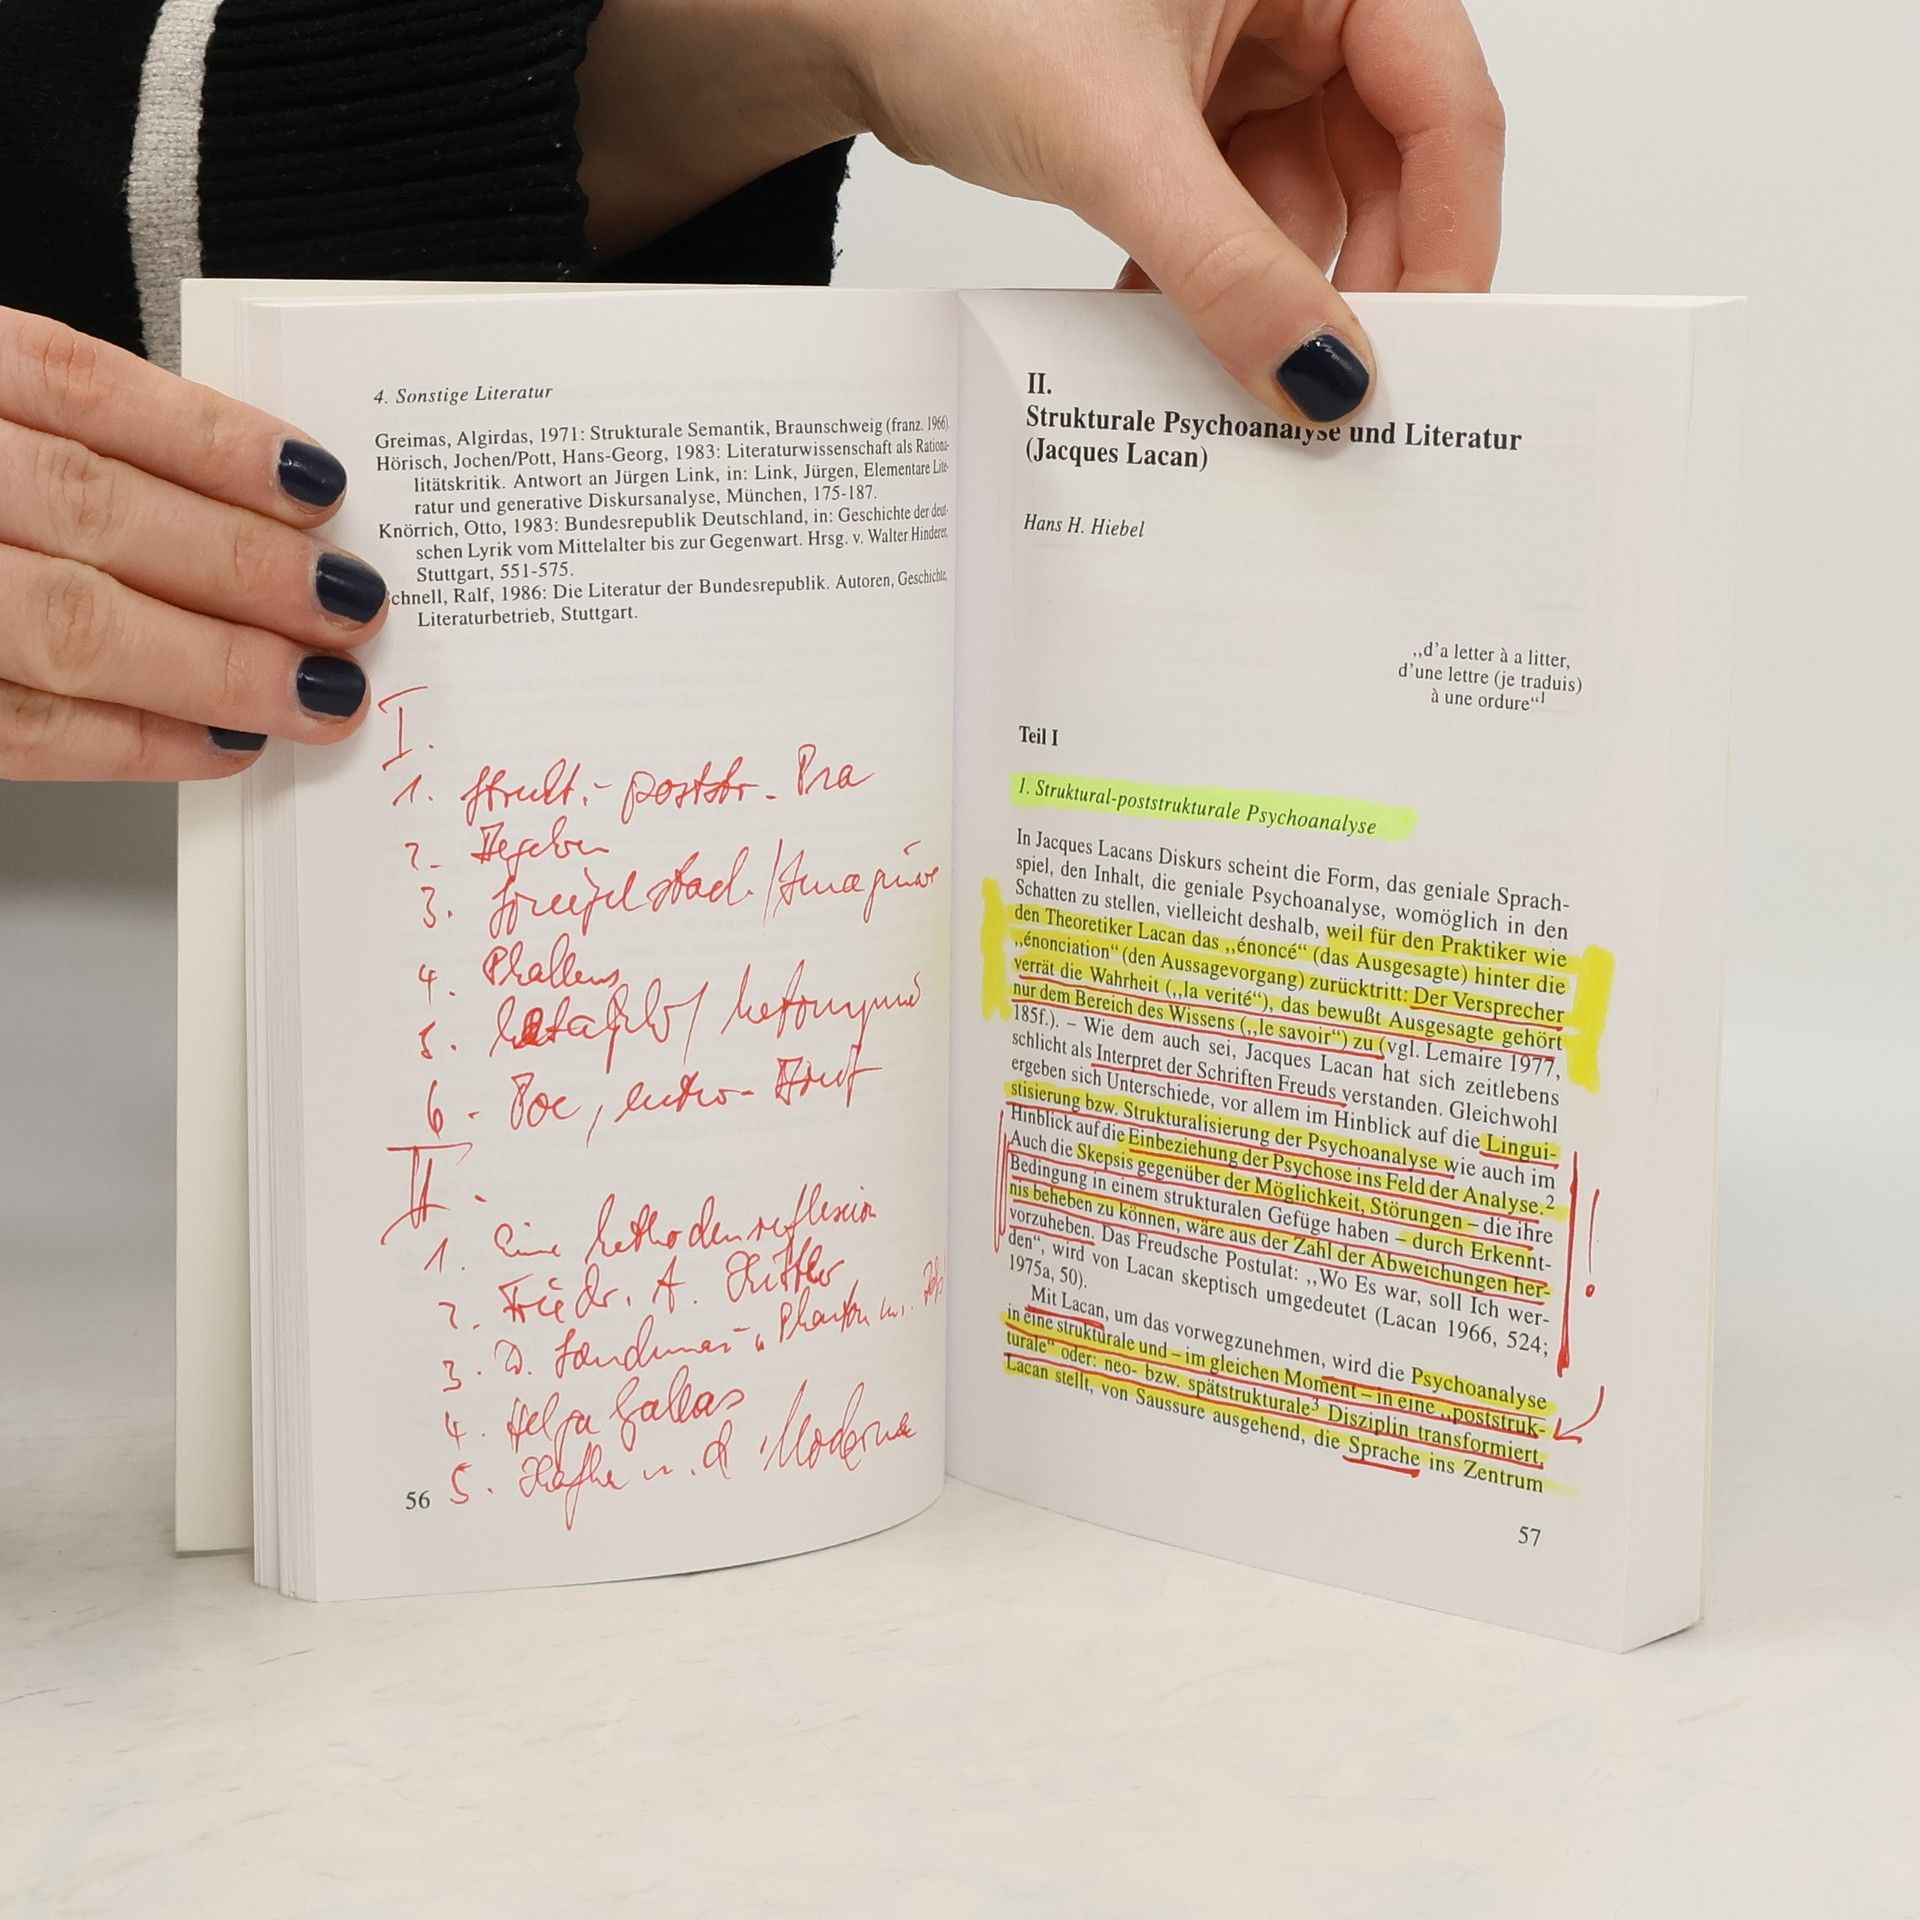 4. Sonstige Literatur
Greimas, Algirdas, 1971: Strukturale Semantik, Braunschweig (franz. 1966).
Hörisch, Jochen/Pott, Hans-Georg, 1983: Literaturwissenschaft als Rationa-
litätskritik. Antwort an Jürgen Link, in: Link, Jürgen, Elementare Lite-
ratur und generative Diskursanalyse, München, 175-187.
Knörrich, Otto, 1983: Bundesrepublik Deutschland, in: Geschichte der deut-
schen Lyrik vom Mittelalter bis zur Gegenwart. Hrsg. v. Walter Hinderer,
Stuttgart, 551-575.
chnell, Ralf, 1986: Die Literatur der Bundesrepublik. Autoren, Geschichte,
Literaturbetrieb, Stuttgart.
I.
1. Strukt.- poststr.
2.
3. Spiegelstad. /
4. Phallus
5.
6. Poe,
II.
1. Eine Methodenreflexion
2. Friedr. A. Kittler
3.
4. Helga Gallas
5. Kafka u. d. Moderne
56
II.
Strukturale Psychoanalyse und Literatur
(Jacques Lacan)
Hans H. Hiebel
„d’a letter à a litter,
d’une lettre (je traduis)
à une ordure“1
Teil I
1. Struktural-poststrukturale Psychoanalyse
In Jacques Lacans Diskurs scheint die Form, das geniale Sprach-
spiel, den Inhalt, die geniale Psychoanalyse, womöglich in den
Schatten zu stellen, vielleicht deshalb, weil für den Praktiker wie
den Theoretiker Lacan das „énoncé“ (das Ausgesagte) hinter die
„énonciation“ (den Aussagevorgang) zurücktritt: Der Versprecher
verrät die Wahrheit („la verité“), das bewußt Ausgesagte gehört
nur dem Bereich des Wissens („le savoir“) zu (vgl. Lemaire 1977,
185f.). – Wie dem auch sei, Jacques Lacan hat sich zeitlebens
schlicht als Interpret der Schriften Freuds verstanden. Gleichwohl
ergeben sich Unterschiede, vor allem im Hinblick auf die Lingui-
stisierung bzw. Strukturalisierung der Psychoanalyse wie auch im
Hinblick auf die Einbeziehung der Psychose ins Feld der Analyse.2
Auch die Skepsis gegenüber der Möglichkeit, Störungen – die ihre
Bedingung in einem strukturalen Gefüge haben – durch Erkennt-
nis beheben zu können, wäre aus der Zahl der Abweichungen her-
vorzuheben. Das Freudsche Postulat: „Wo Es war, soll Ich wer-
den“, wird von Lacan skeptisch umgedeutet (Lacan 1966, 524;
1975a, 50).
Mit Lacan, um das vorwegzunehmen, wird die Psychoanalyse
in eine strukturale und – im gleichen Moment – in eine „poststruk-
turale“ oder: neo- bzw. spätstrukturale3 Disziplin transformiert.
Lacan stellt, von Saussure ausgehend, die Sprache ins Zentrum
!
57